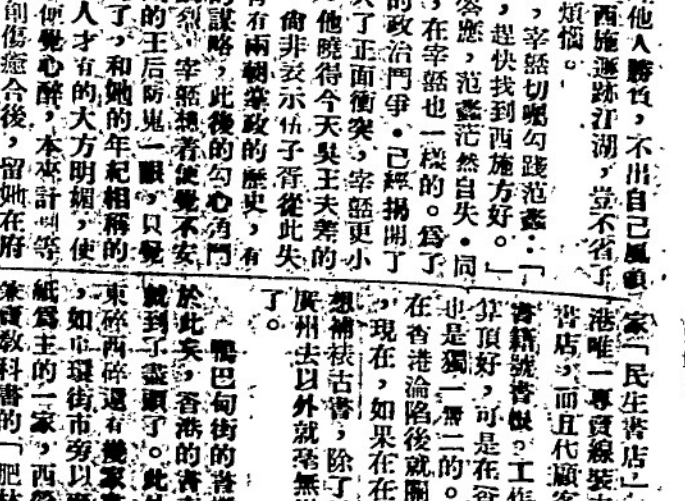 他人勝負，不出自己風頭
西施遁跡江湖，豈不省了
煩惱。
，宰嚭切囑勾踐范蠡：「
，趕快找到西施方好。」
答應，范蠡茫然自失。同
，在宰嚭也一樣的。爲了
的政治鬥爭，已經揭開了
了正面衝突，宰嚭更小
他曉得今天吳王夫差的
尙非表示伍子胥從此失
有兩朝掌政的歷史，有
的謀略，此後的勾心鬥
烈，宰嚭想着便覺不安
的王后防鬼一眼，只覺
了，和她的年紀相稱的
人才有的大方明媚，使
便覺心醉，本來計 等
創傷癒合後，留她在府
家「民生書店，」
港唯一專賣線裝
書店，而且代顧客
書籍號書根。工作
算頂好，可是在香
也是獨一無二的。
在香港淪陷後就關
，現在，如果在
想補裱古書，除了
廣州去以外就毫無
了。
鴨巴甸街的書
於此矣，香港的書
就到了盡頭了。此外
東碎西碎還有幾家
，如中環街市旁以
紙爲主的一家，西
兼賣敎科書的「肥